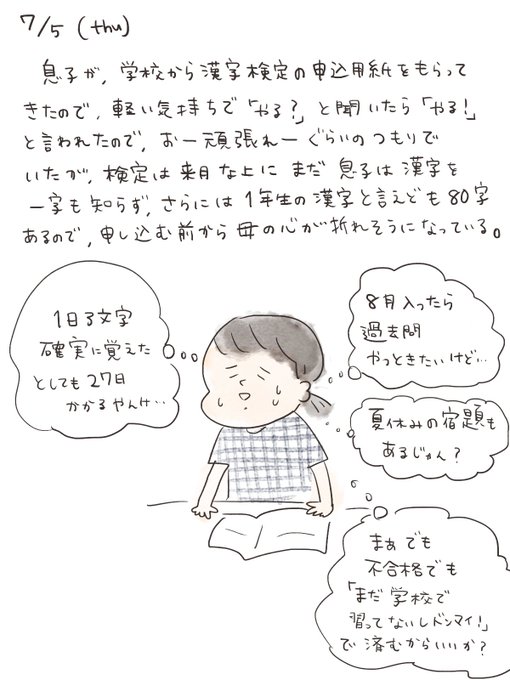 7/5 (thu)
息子が、学校から漢字検定の申込用紙をもらって
きたので、軽い気持ちで「やる？」と聞いたら「やる！」
と言われたので、おー頑張れーぐらいのつもりで
いたが、検定は来月な上にまだ息子は漢字を
一字も知らず、さらには1年生の漢字と言えども80字
あるので、申し込む前から母の心が折れそうになっている。
1日3文字
確実に覚えた
としても27日
かかるやんけ‥
8月入ったら
過去問
やっときたいけど‥
夏休みの宿題も
あるじゃん？
まぁでも
不合格でも
「まだ学校で
習ってないしドンマイ！」
で済むからいいか？